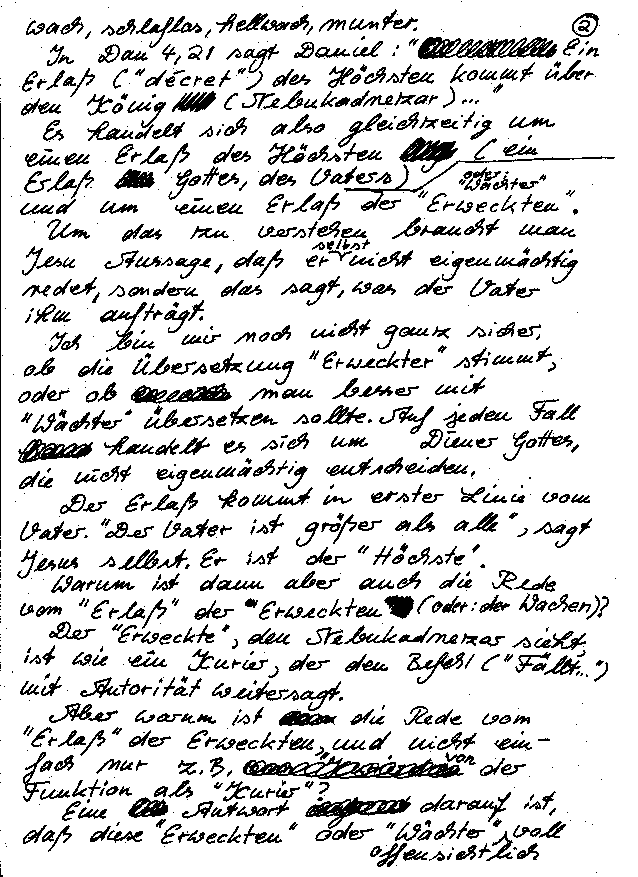 wach, schlaflos, hellwach, munter. ②
In Dan 4,21 sagt Daniel: " Ein
Erlaß ("décret") des Höchsten kommt über
den König (Nebukadnetzar)..."
Es handelt sich also gleichzeitig um
einen Erlaß des Höchsten (ein
Erlaß Gottes, des Vaters)
oder: "Wächter"
und um einen Erlaß der "Erweckten".
Um das zu verstehen braucht man
Jesu Aussage, daß er selbst nicht eigenmächtig
redet, sondern das sagt, was der Vater
ihm aufträgt.
Ich bin mir noch nicht ganz sicher,
ob die Übersetzung "Erweckter" stimmt,
oder ob man besser mit
"Wächter" übersetzen sollte. Auf jeden Fall
handelt es sich um Diener Gottes,
die nicht eigenmächtig entscheiden.
Der Erlaß kommt in erster Linie vom
Vater. "Der Vater ist größer als alle", sagt
Jesus selbst. Er ist der "Höchste".
Warum ist dann aber auch die Rede
vom "Erlaß" der "Erweckten (oder: der Wachen)?
Der "Erweckte", den Nebukadnetzar sieht,
ist wie ein Kurier, der den Befehl ("Fällt...")
mit Autorität weitersagt.
Aber warum ist die Rede vom
"Erlaß" der Erweckten, und nicht ein-
fach nur z.B. von der
Funktion als "Kurier"?
Eine Antwort darauf ist,
daß diese "Erweckten" oder "Wächter" voll
offensichtlich